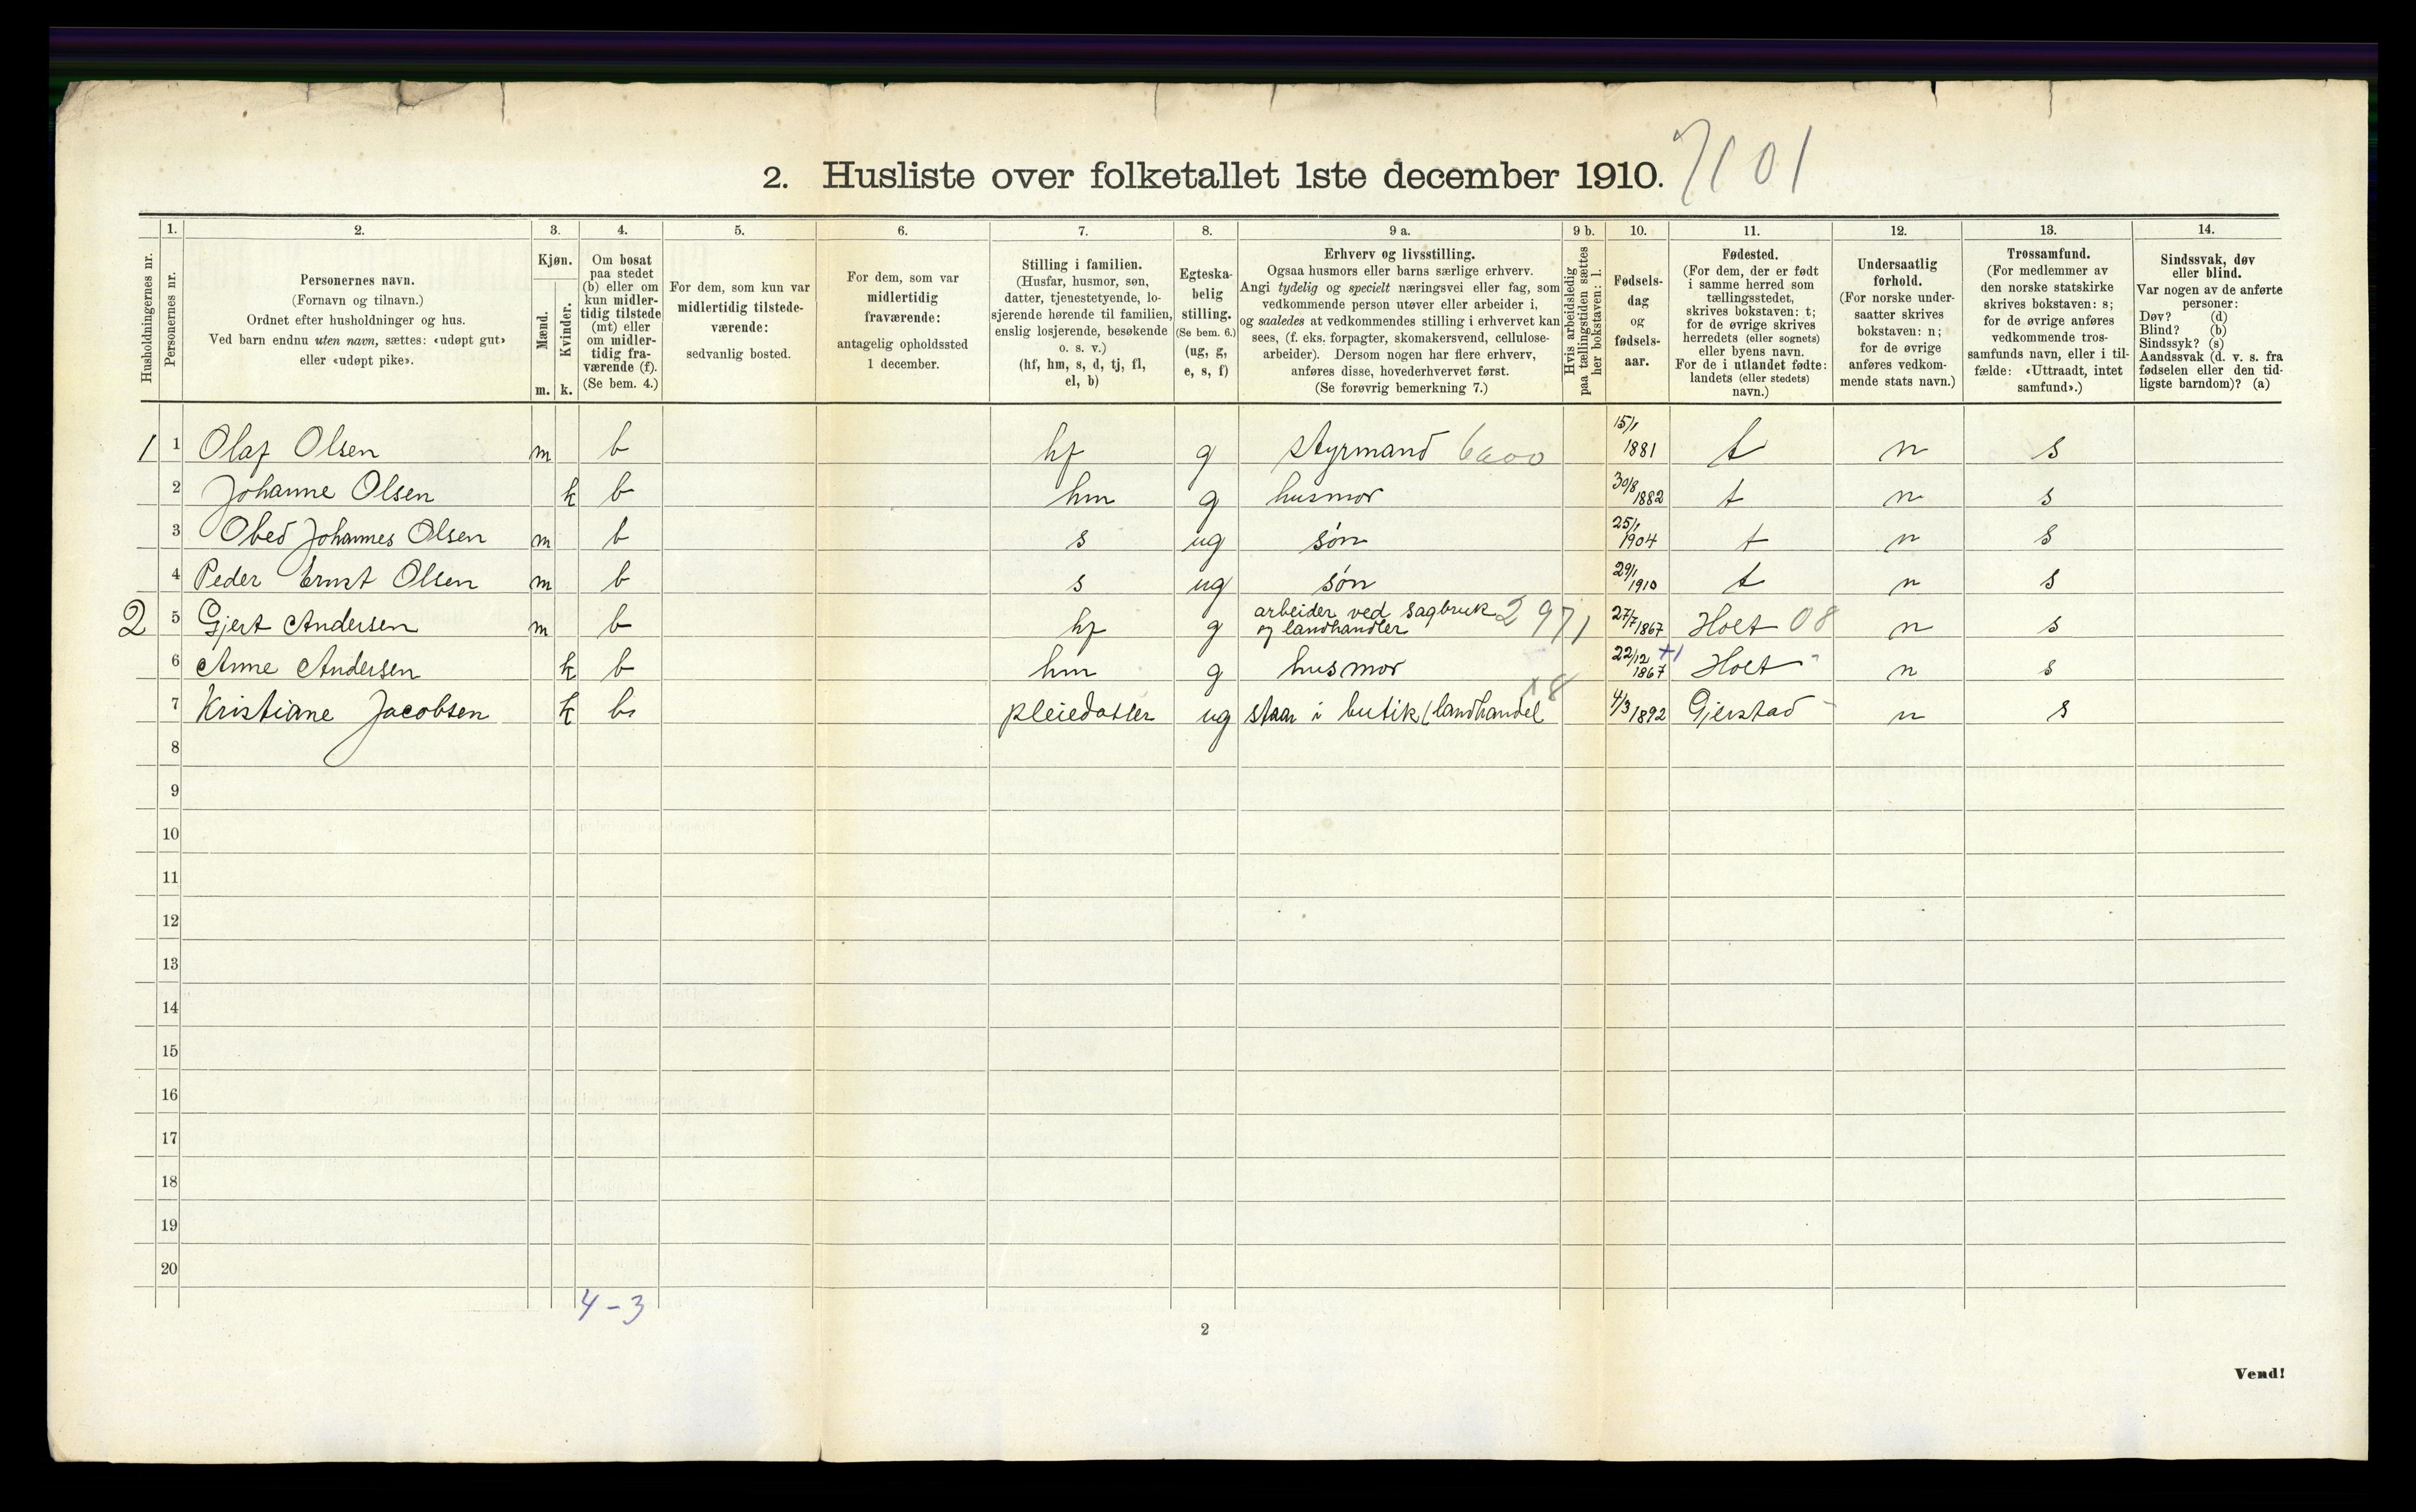 2. Husliste over folketallet 1ste december 1910. 7101
Husholdningernes nr.
1.
Personernes nr.
2.
Personernes navn.
(Fornavn og tilnavn.)
Ordnet efter husholdninger og hus.
Ved barn endnu uten navn, sættes: «udøpt gut»
eller «udøpt pike».
3.
Kjøn.
Mænd.
Kvinder.
m. k.
4.
Om bosat
paa stedet
(b) eller om
kun midler-
tidig tilstede
(mt) eller
om midler-
tidig fra-
værende (f).
(Se bem. 4.)
5.
For dem, som kun var
midlertidig tilstede-
værende:
sedvanlig bosted.
6.
For dem, som var
midlertidig
fraværende:
antagelig opholdssted
1 december.
7.
Stilling i familien.
(Husfar, husmor, søn,
datter, tjenestetyende, lo-
sjerende hørende til familien,
enslig losjerende, besøkende
o. s. v.)
(hf, hm, s, d, tj, fl,
el, b)
8.
Egteska-
belig
stilling.
(Se bem. 6.)
(ug, g,
e, s, f)
9 a.
Erhverv og livsstilling.
Ogsaa husmors eller barns særlige erhverv.
Angi tydelig og specielt næringsvei eller fag, som
vedkommende person utøver eller arbeider i,
og saaledes at vedkommendes stilling i erhvervet kan
sees, (f. eks. forpagter, skomakersvend, cellulose-
arbeider). Dersom nogen har flere erhverv,
anføres disse, hovederhvervet først.
(Se forøvrig bemerkning 7.)
9 b.
Hvis arbeidsledig
paa tællingstiden sættes
her bokstaven: l.
10.
Fødsels-
dag
og
fødsels-
aar.
11.
Fødested.
(For dem, der er født
i samme herred som
tællingsstedet,
skrives bokstaven: t;
for de øvrige skrives
herredets (eller sognets)
eller byens navn.
For de i utlandet fødte:
landets (eller stedets)
navn.)
12.
Undersaatlig
forhold.
(For norske under-
saatter skrives
bokstaven: n;
for de øvrige
anføres vedkom-
mende stats navn.)
13.
Trossamfund.
(For medlemmer av
den norske statskirke
skrives bokstaven: s;
for de øvrige anføres
vedkommende tros-
samfunds navn, eller i til-
fælde: «Uttraadt, intet
samfund».)
14.
Sindssvak, døv
eller blind.
Var nogen av de anførte
personer:
Døv? (d)
Blind? (b)
Sindssyk? (s)
Aandssvak (d. v. s. fra
fødselen eller den tid-
ligste barndom)? (a)
1 1 Olaf Olsen m b hf g styrmand 6600 15/1 1881 t n s
2 Johanne Olsen k b hm g husmor 30/8 1882 t n s
3 Obed Johannes Olsen m b s ug søn 25/1 1904 t n s
4 Peder Ernst Olsen m b s ug søn 29/1 1910 t n s
2 5 Gjert Andersen m b hf g arbeider ved sagbruk og landhandler 2971 27/7 1867 Holt 08 n s
6 Anne Andersen k b hm g husmor 22/12 1867 +1 Holt " n s
7 Kristiane Jacobsen k b pleiedatter ug staar i butik (landhandel x8 4/3 1892 Gjerstad - n s
8
9
10
11
12
13
14
15
16
17
18
19
20
4-3
2
Vend!